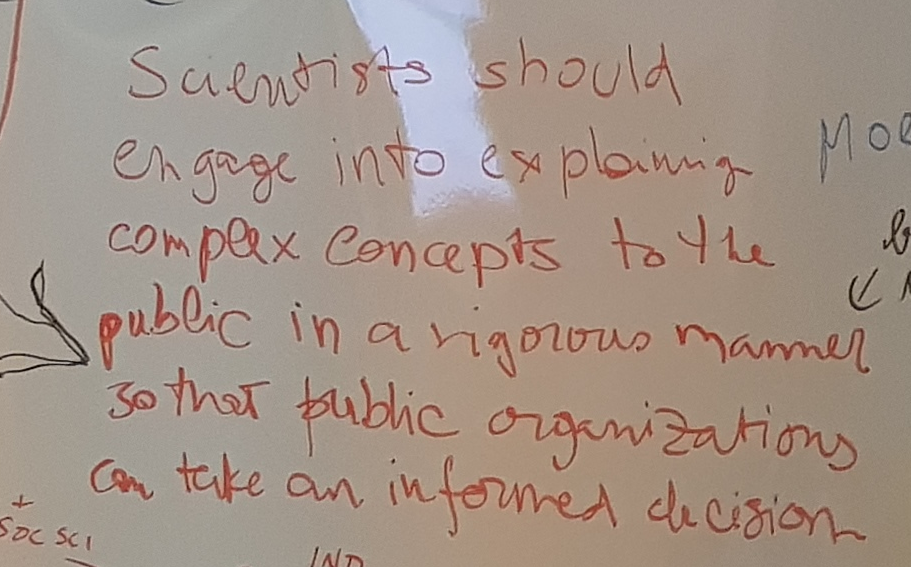 Scientists should
engage into explaining
complex concepts to the
public in a rigorous manner
so that public organizations
can take an informed decision
+
SOC SCI
IND